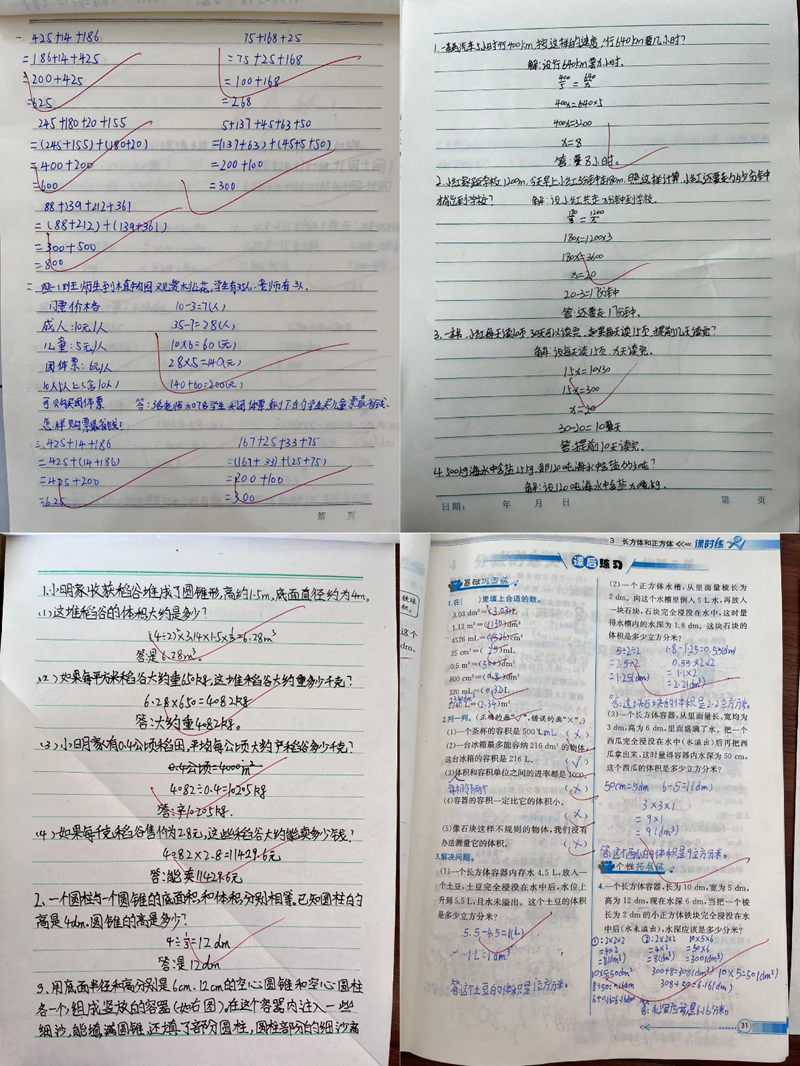 一. 425+14+186
=186+14+425
=200+425
=625
75+168+25
=75+25+168
=100+168
=268
245+180+20+155
=(245+155)+(180+20)
=400+200
=600
5+137+45+63+50
=(137+63)+(45+5+50)
=200+100
=300
88+139+212+361
=(88+212)+(139+361)
=300+500
=800
学生有35人,老师有3人.
门票价格
成人:10元/人
儿童:5元/人
团体票:6元/人
10人以上(含10人)
可购买团体票
怎样购票最省钱?
10-3=7(人)
35-7=28(人)
10×6=60(元)
28×5=140(元)
140+60=200(元)
三.425+14+186
=425+(14+186)
=425+200
=625
167+25+33+75
=(167+33)+(25+75)
=200+100
=300
第 页
1.一辆汽车5小时行400km,按这样的速度,行640km要几小时?
解:设行640km要x小时.
400/5=640/x
400x=640×5
400x=3200
x=8
答:要8小时.
2.小红家距学校1200m,今天早上小红3分钟走180m,照这样计算,小红还要走多少分钟
才能到学校?
解:设小红共走x分钟到学校.
180/3=1200/x
180x=1200×3
180x=3600
x=20
20-3=17分钟
答:还要走17分钟.
3.一本书,小红每天读10页,30天可以读完,如果每天读15页,提前几天读完?
解:设每天读15页,x天读完.
15x=10×30
15x=300
x=20
30-20=10天
答:提前10天读完.
日期: 年 月 日 第 页
1.小明家收获稻谷堆成了圆锥形,高约1.5m,底面直径约为4m.
(1)这堆稻谷的体积大约是多少?
(4÷2)²×3.14×1.5×1/3=6.28m³
答:是6.28m³.
(2)如果每立方米稻谷大约重650kg,这堆稻谷大约重多少千克?
6.28×650=4082kg
答:大约重4082kg.
(3)小明家有0.4公顷稻田,平均每公顷大约产稻谷多少千克?
0.4公顷=4000m²
4082÷0.4=10205kg
答:产10205kg.
(4)如果每千克稻谷售价为2.8元,这些稻谷大约能卖多少钱?
4082×2.8=11429.6元
答:能卖11429.6元
2.一个圆柱与一个圆锥的底面积和体积分别相等,已知圆柱的
高是4dm,圆锥的高是多少?
4÷1/3=12dm
答:是12dm
3.用底面半径和高分别是6cm,12cm的空心圆锥和空心圆柱
各一个,组成竖放的容器(如右图),在这个容器内注入一些
细沙,能填满圆锥,还填了部分圆柱,圆柱部分的细沙高
3 长方体和正方体 课时练
课后练习
基础巩固练
1.在( )里填上合适的数。
3.03 dm³=(3.03)L
1.13 m³=(1130)dm³
4526 mL=(4526)cm³
25 cm³=(25)mL
0.5 m³=(500)dm³
800 cm³=(0.8)dm³
320 mL=(0.32)L
2340 L=(2.34)m³
2.判一判。(正确的画“√”,错误的画“×”。)
(1)一个茶杯的容积是500 L。 (×)
(2)一台冰箱最多能容纳216 dm³的物体,
这台冰箱的容积是216 L。 (√)
(3)体积和容积单位之间的进率都是1000。
(×)
(4)容器的容积一定比它的体积小。
(×)
(5)像石块这样不规则的物体,我们没有
办法测量它的体积。 (×)
3.解决问题。
(1)一个长方体容器内存水4.5 L,放入一
个土豆,土豆完全浸没在水中后,水位上
升到5.5 L,且水未溢出。这个土豆的体积
是多少立方分米?
5.5-4.5=1(L)
1L=1dm³
答:这个土豆的体积是1立方分米。
(2)一个正方体水槽,从里面量棱长为
2 dm。向这个水槽里倒入5 L水,再放入
一块石块,石块完全浸没在水中,这时量
得水槽内的水深为1.8 dm。这块石块的
体积是多少立方分米?
5÷2÷2
=2.5÷2
=1.25(dm)
1.8-1.25=0.55(dm)
0.55×2×2
=1.1×2
=2.2(dm³)
答:这块石块的体积是2.2立方分米。
(3)一个长方体容器,从里面量长、宽均为
3 dm,高为6 dm,里面盛满了水。把一个
西瓜完全浸没在水中(水溢出)后再把西
瓜拿出来,这时量得容器内水深为50 cm,
这个西瓜的体积是多少立方分米?
50cm=5dm 6-5=1(dm)
3×3×1
=9×1
=9(dm³)
答:这个西瓜的体积是9立方分米。
个性拓展练
4.一个长方体容器,长为10 dm,宽为5 dm,
高为12 dm,现在水深6 dm,当把一个棱
长为2 dm的小正方体铁块完全浸没在水
中后(水未溢出),水深应该是多少分米?
①:2×2×2
=4×2
=8(dm³)
10×5=50dm²
8÷50=0.16dm
6+0.16=6.16dm
②:2×2×2
=4×2
=8(dm³)
10×5×6
=50×6
=300(dm³)
300+8=308(dm³)
10×5=50(dm²)
308÷50=6.16(dm)
答:水深应该是6.16分米。
31